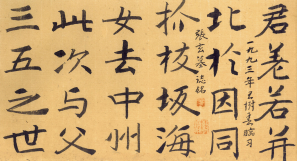 君羗若并
一九九三年
臨习
北於因同
張玄墓誌銘
枝坂海
女去中州
此次与父
三五之世